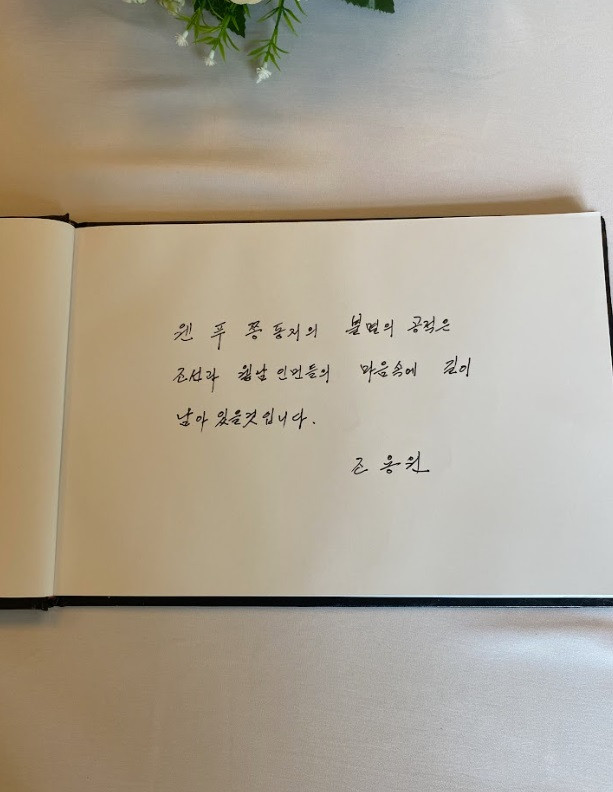 웬 푸 쫑 동지의 불멸의 공적은
조선과 웰남 인민들의 마음속에 길이
남아 있을것입니다.
조 용 원